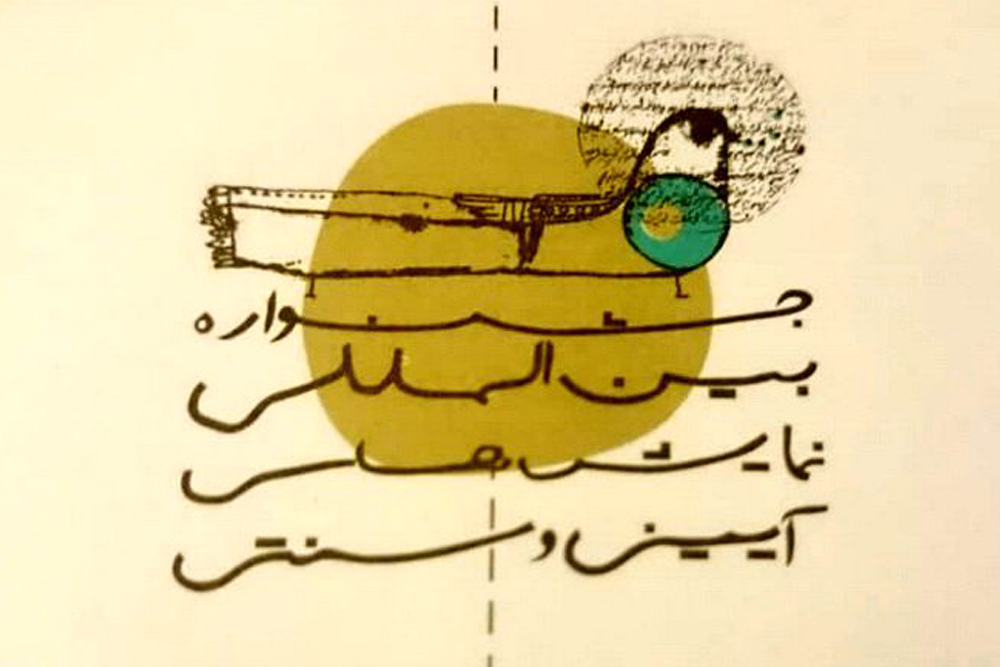 جشنواره
بین المللی
نمایش های
آیینی و سنتی